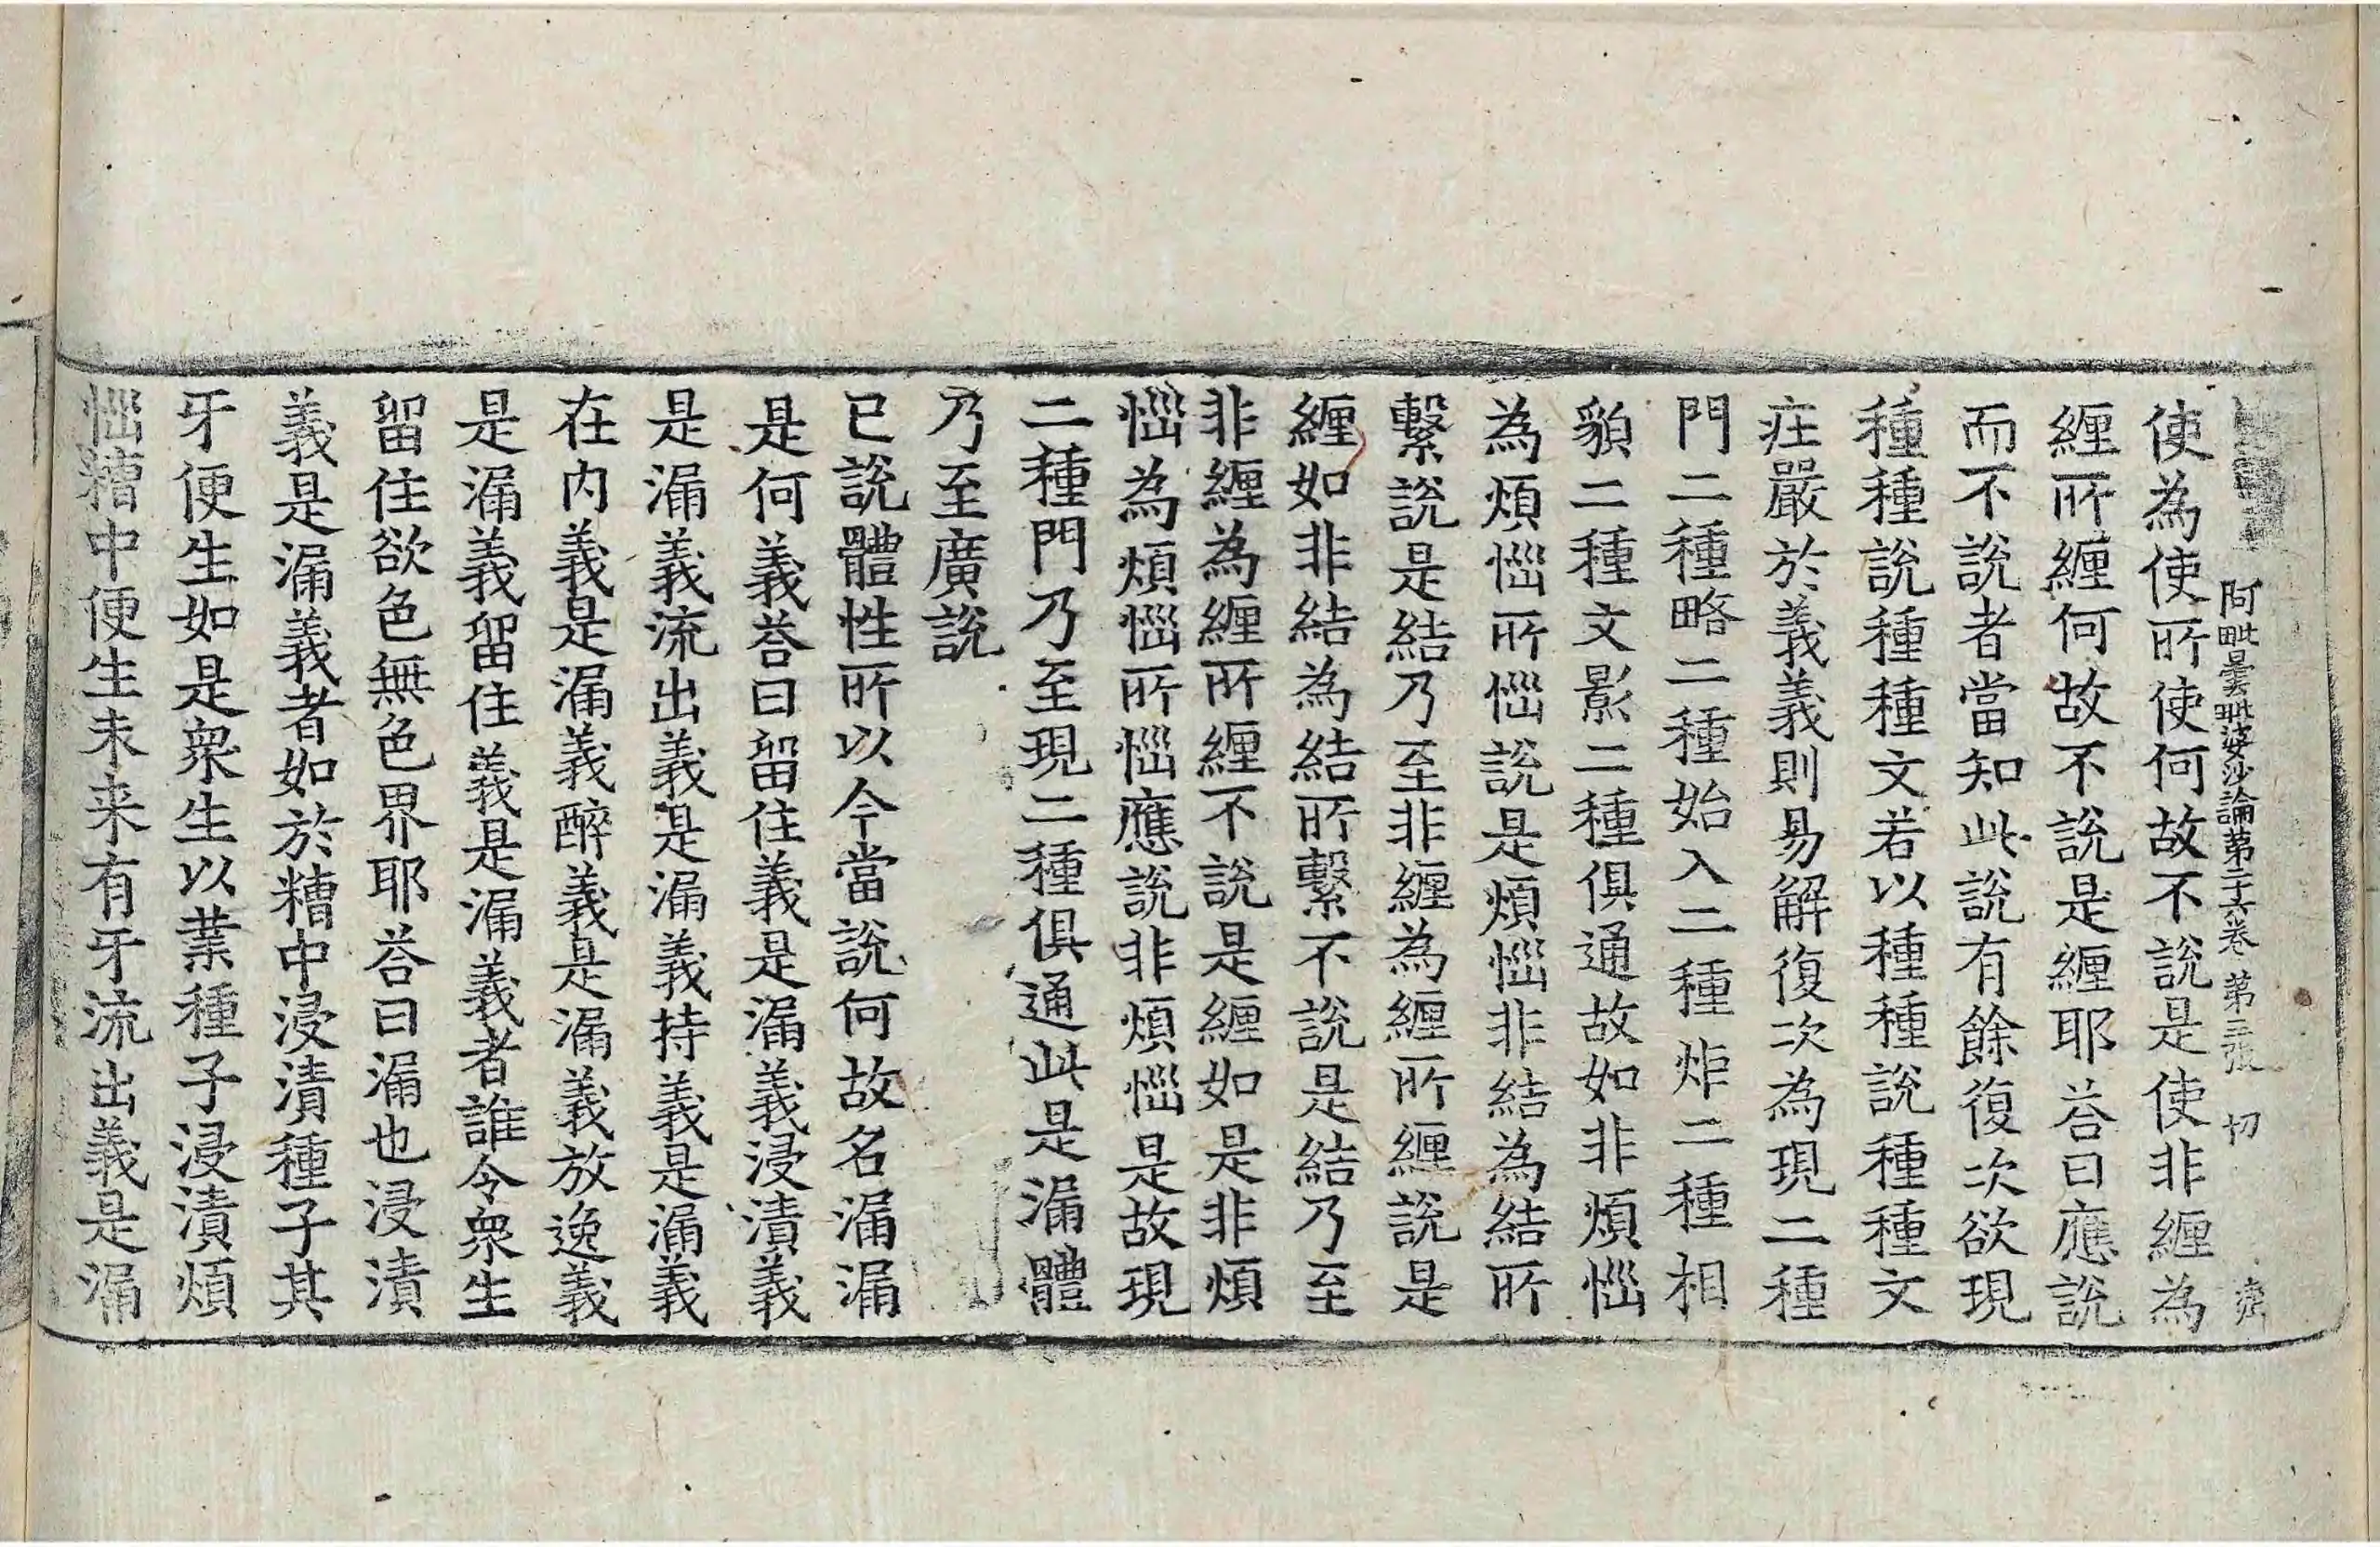 阿毗曇毗婆沙論第二十六卷 第三張 切
使為使所使何故不說是使非纏為
纏所纏何故不說是纏耶荅曰應說
而不說者當知此說有餘復次欲現
種種說種種文若以種種說種種文
庄嚴於義義則易解復次為現二種
門二種略二種始入二種炬二種相
貌二種文影二種俱通故如非煩惱
為煩惱所惱說是煩惱非結為結所
繫說是結乃至非纏為纏所纏說是
纏如非結為結所繫不說是結乃至
非纏為纏所纏不說是纏如是非煩
惱為煩惱所惱應說非煩惱是故現
二種門乃至現二種俱通此是漏體
乃至廣說
已說體性所以今當說何故名漏漏
是何義荅曰留住義是漏義浸漬義
是漏義流出義是漏義持義是漏義
在內義是漏義醉義是漏義放逸義
是漏義留住義是漏義者誰令衆生
留住欲色無色界耶荅曰漏也浸漬
義是漏義者如於糟中浸漬種子其
牙便生如是衆生以業種子浸漬煩
惱糟中便生未来有牙流出義是漏